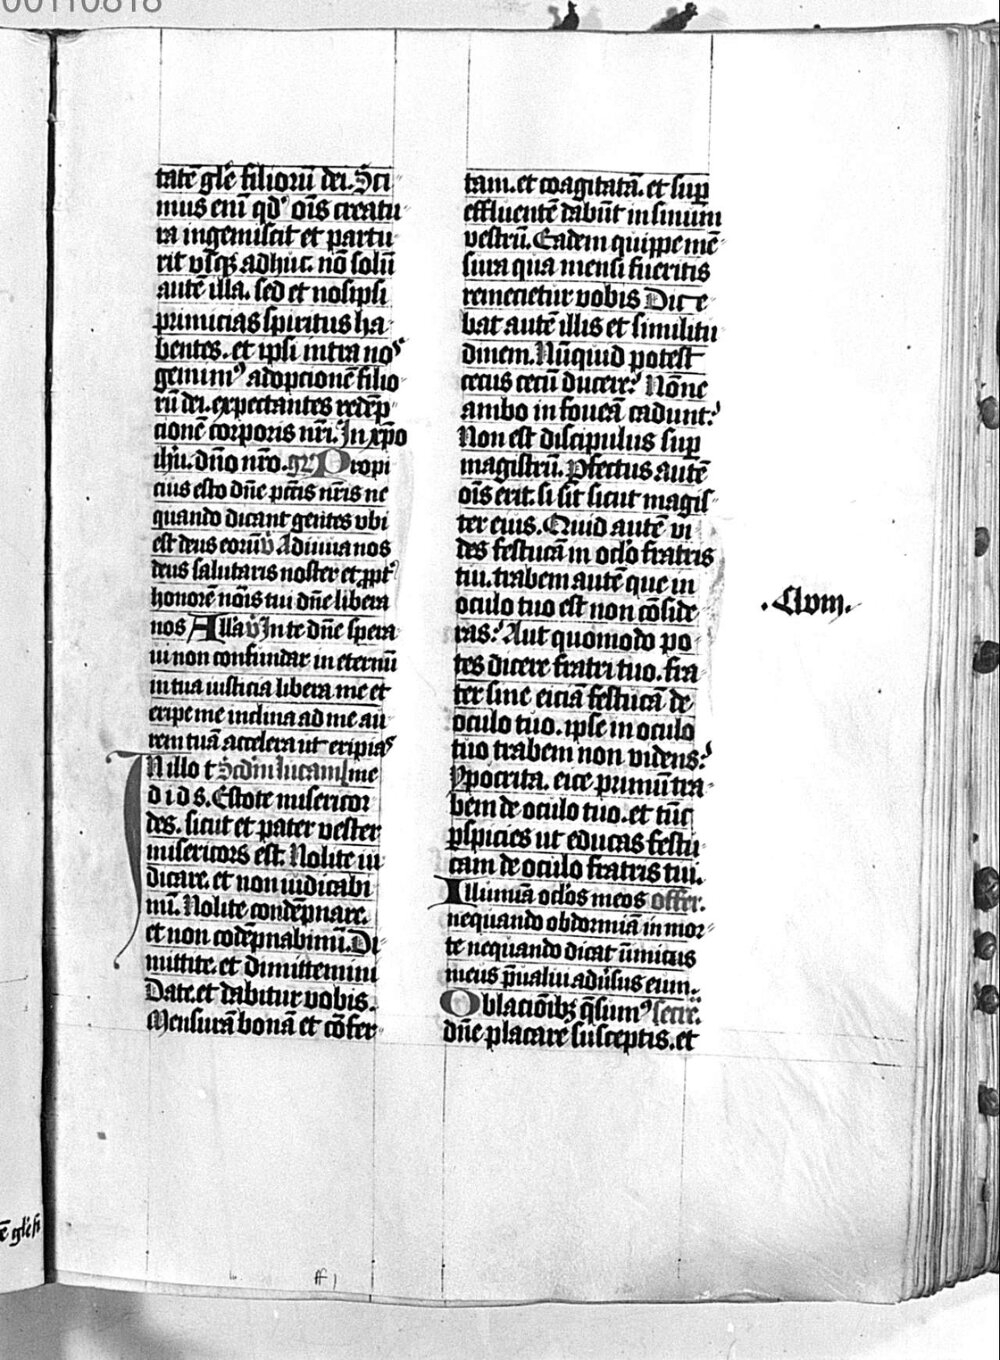 00110818
tatē gl̄e filiorū dei. Sci
mus enī qd' oīs creatu
ra ingemiscit et partu
rit vsqȝ adhuc. nō solū
autē illa. sed et nosipsi
primicias spiritus ha
bentes. et ipsi intra nos
gemim⁹ adopcionē filio
rū dei. expectantes redēp
cionē corporis nr̄i. In xp̄o
ihū. dn̄o nr̄o. gr̄ Propi
cius esto dn̄e pctīs nr̄is ne
quando dicant gentes vbi
est deus eorū v̄ Adiuua nos
deus salutaris noster et ꝓpt'
honorē nōīs tui dn̄e libera
nos Alla v̄ In te dn̄e spera
ui non confundar in eternū
in tua iusticia libera me et
eripe me inclina ad me au
rem tuā accelera ut eripias
In illo t Scdm lucam
d i d s. Estote misericor
des. sicut et pater vester
misericors est. Nolite iu
dicare. et non iudicabi
mī. Nolite condēpnare.
et non cōdēpnabimī. Di
mittite. et dimittemini
Date. et dabitur vobis.
Mensurā bonā et cōfer
tam. et coagitatā. et suꝑ
effluentē dabūt in sinum
vestrū. Eadem quippe mē
sura qua mensi fueritis
remecietur vobis Dice
bat autē illis et similitu
dinem. Nūquid potest
cecus cecū ducere? Nōne
ambo in foueā cadunt?
Non est discipulus suꝑ
magistrū. Ꝑfectus autē
oīs erit. si sit sicut magis
ter eius. Quid autē vi
des festucā in oc̄lo fratris
tui. trabem autē que in
oculo tuo est non cōside
ras? Aut quomodo po
tes dicere fratri tuo. fra
ter sine eiciā festucā de
oculo tuo. ipse in oculo
tuo trabem non videns?
Ypocrita. eice primū tra
bem de oculo tuo. et tūc
ꝑspicies ut educas festu
cam de oculo fratris tui.
Illuminā oc̄los meos offer.
nequando obdormiā in mor
te nequando dicat inimicus
meus p̄ualui adūsus eum.
Oblaciōibȝ q̄sum⁹ secre.
dn̄e placare susceptis. et
.Clvm.
ē gl̄e fi
ff j